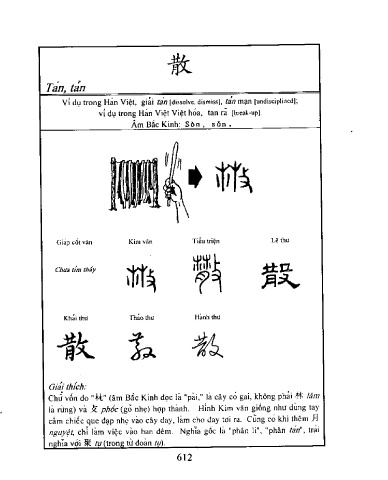 散
Tán, tán
Ví dụ trong Hán Việt, giải tán [dissolve, dismiss], tán mạn [undisciplined];
ví dụ trong Hán Việt Việt hóa, tan rã [break-up]
Âm Bắc Kinh: Sàn, sǎn.
Giáp cốt văn Kim văn Tiểu triện Lệ thư
Chưa tìm thấy
散
Khải thư Thảo thư Hành thư
散 散
Giải thích:
Chữ vốn do "𣏟" (âm Bắc Kinh đọc là "pài," là cây có gai, không phải 林 lâm
là rừng) và 攵 phốc (gõ nhẹ) hợp thành. Hình Kim văn giống như dùng tay
cầm chiếc que đạp nhẹ vào cây đay, làm cho đay tơi ra. Cũng có khi thêm 月
nguyệt, chỉ làm việc vào ban đêm. Nghĩa gốc là "phân li", "phân tán", trái
nghĩa với 聚 tụ (trong từ đoàn tụ).
612